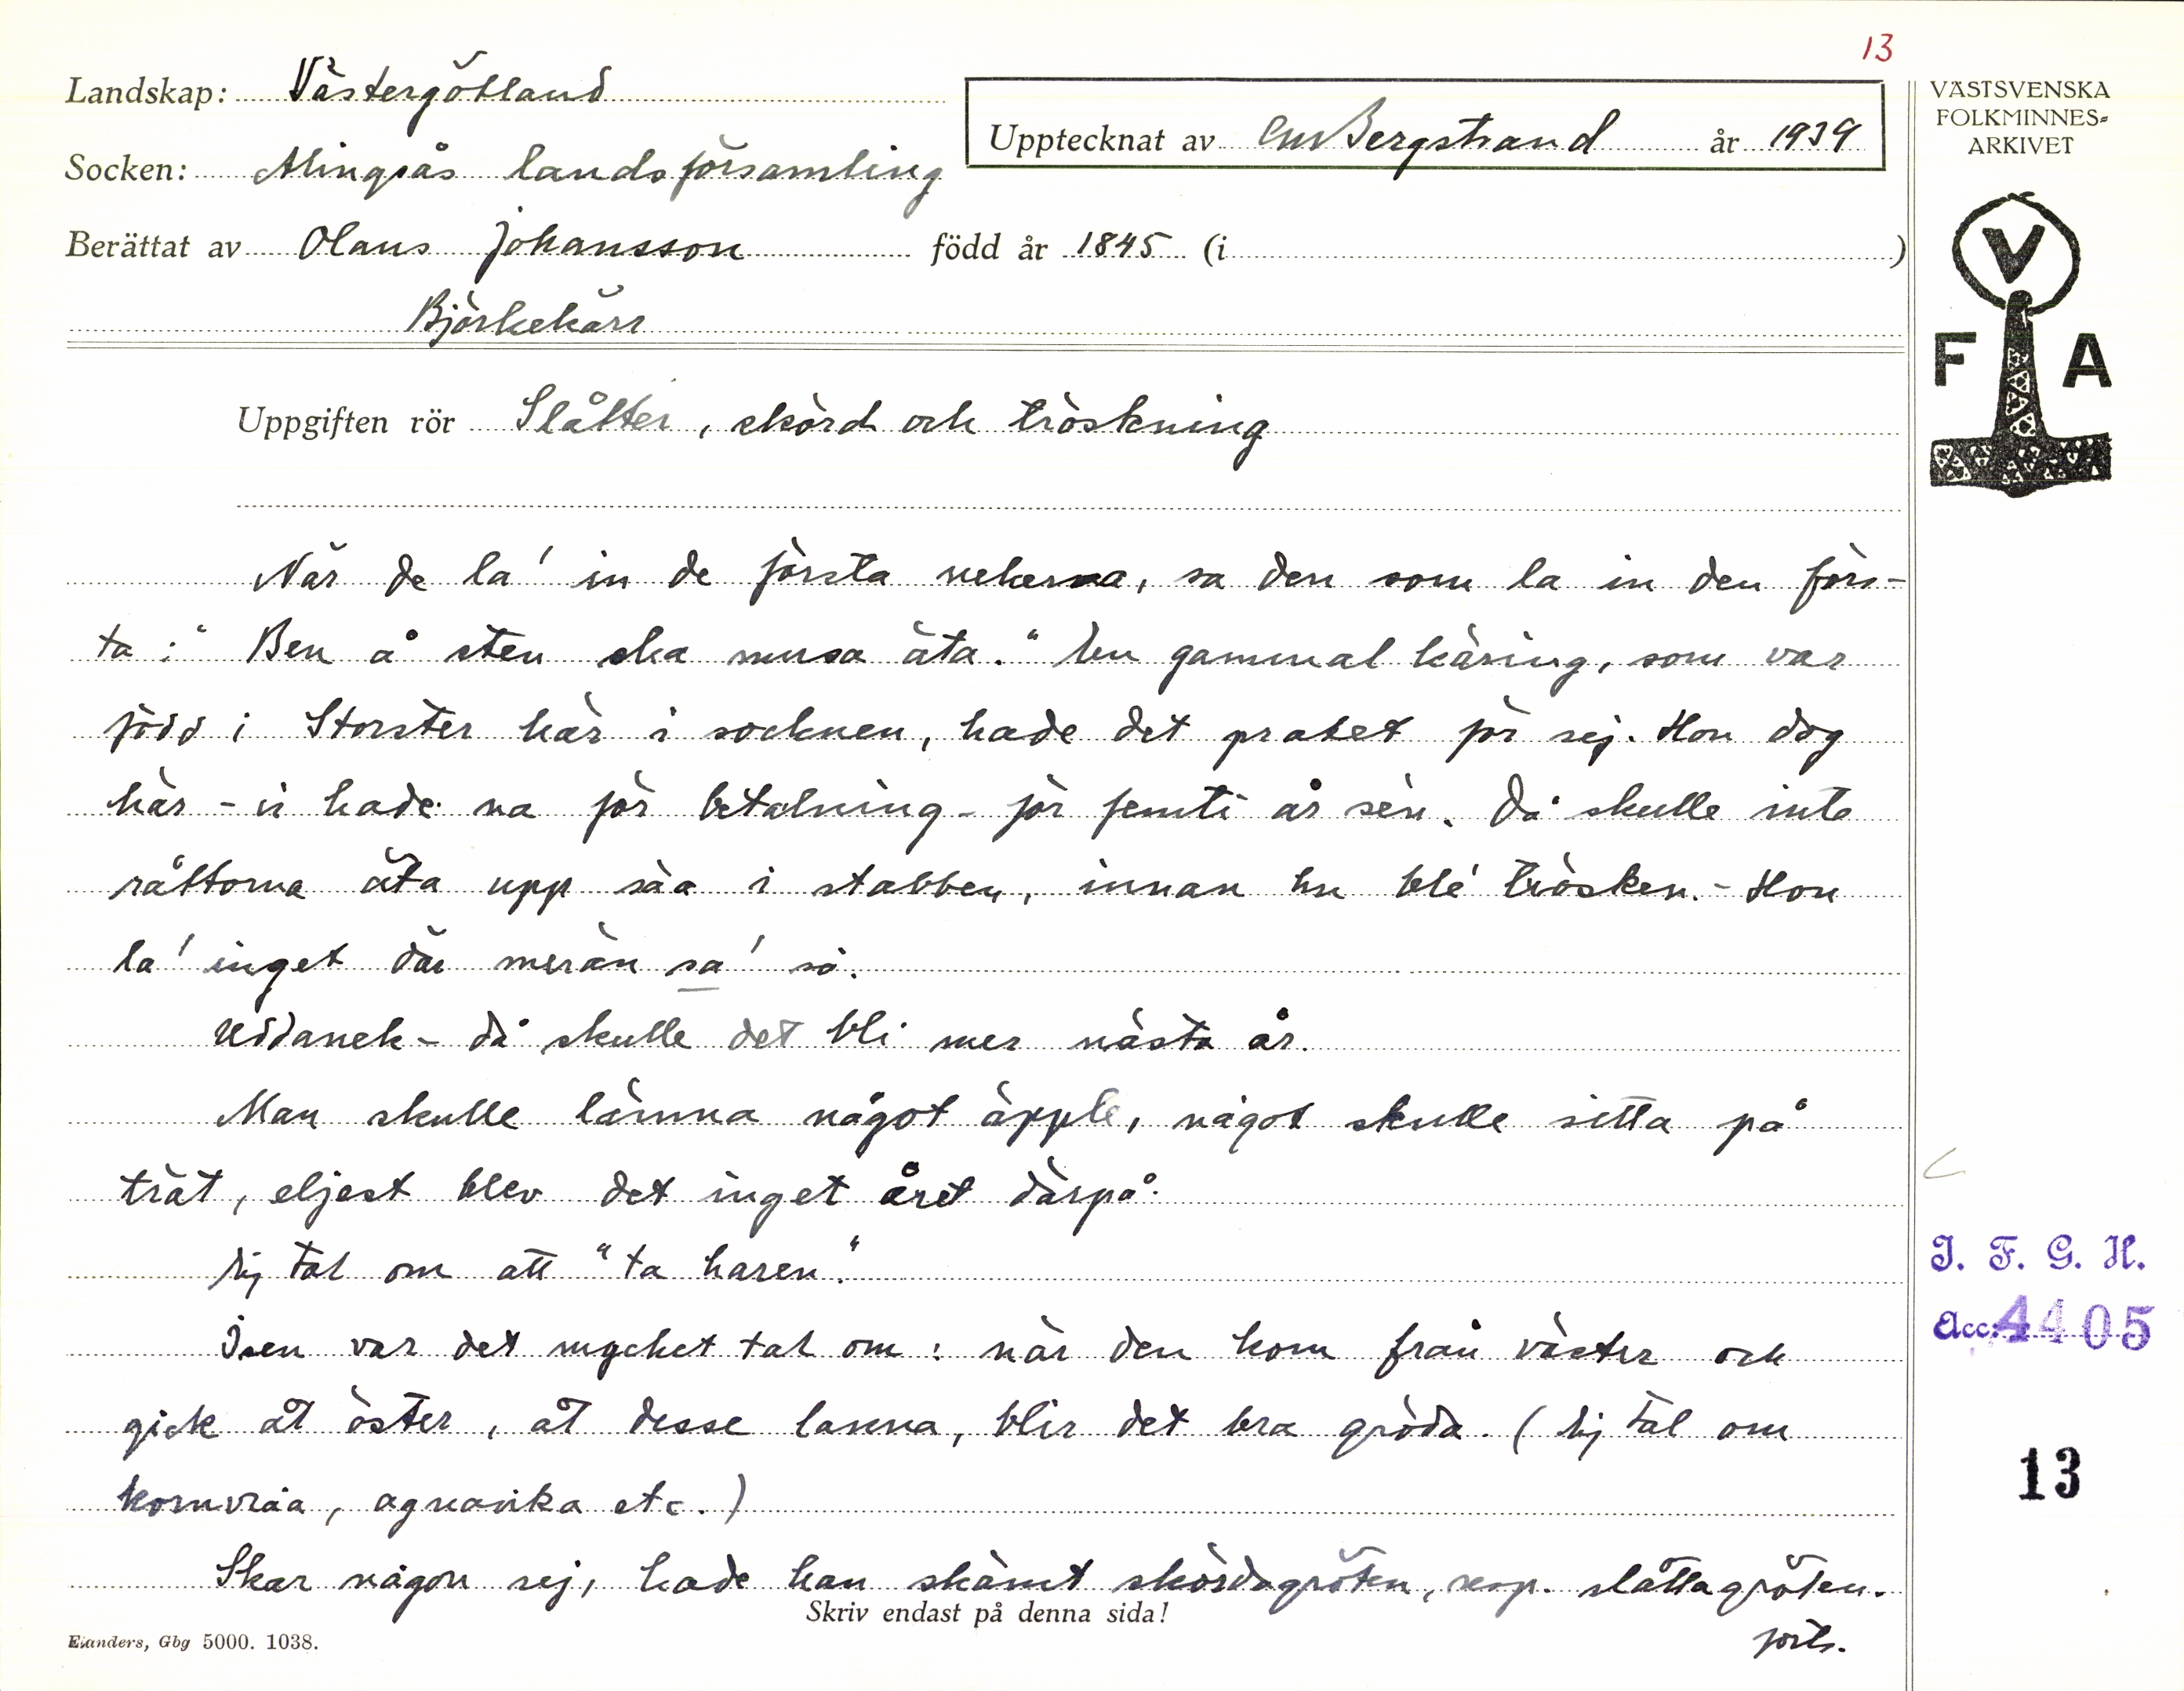 13
Landskap: Västergötland
Upptecknat av CM Bergstrand år 1939
Socken: Alingsås landsförsamling
Berättat av Olaus Johansson född år 1845 (i )
Björkekärr
VÄSTSVENSKA
FOLKMINNES=
ARKIVET
V
F A
Uppgiften rör Slåtter, skörd och tröskning
När de la' in de första nekerna, sa den som la in den förs-
ta: "Ben å sten ska musa äta." En gammal käring, som var
född i Storster här i socknen, hade det pratet för sej. Hon dog
här - vi hade na för betalning - för femti år sèn. Då skulle inte
råttorna äta upp säa i stabben, innan hu ble' trösken. - Hon
la' inget där merän sa' så.
Uddanek - då skulle det bli mer nästa år.
Man skulle lämna något äpple, något skulle sitta på
trät, eljest blev det inget året därpå.
Ej tal om att "ta haren".
Isen var det mycket tal om: när den kom från väster och
gick åt öster, åt desse lanna, blir det bra gröda. (Ej tal om
kornvråa, agnavika etc.)
Skar någon sej, hade han skämt skördagröten, resp. slåttagröten.
forts.
Skriv endast på denna sida!
Elanders, Gbg 5000. 1038.
I. F. G. H.
Acc: 4405
13